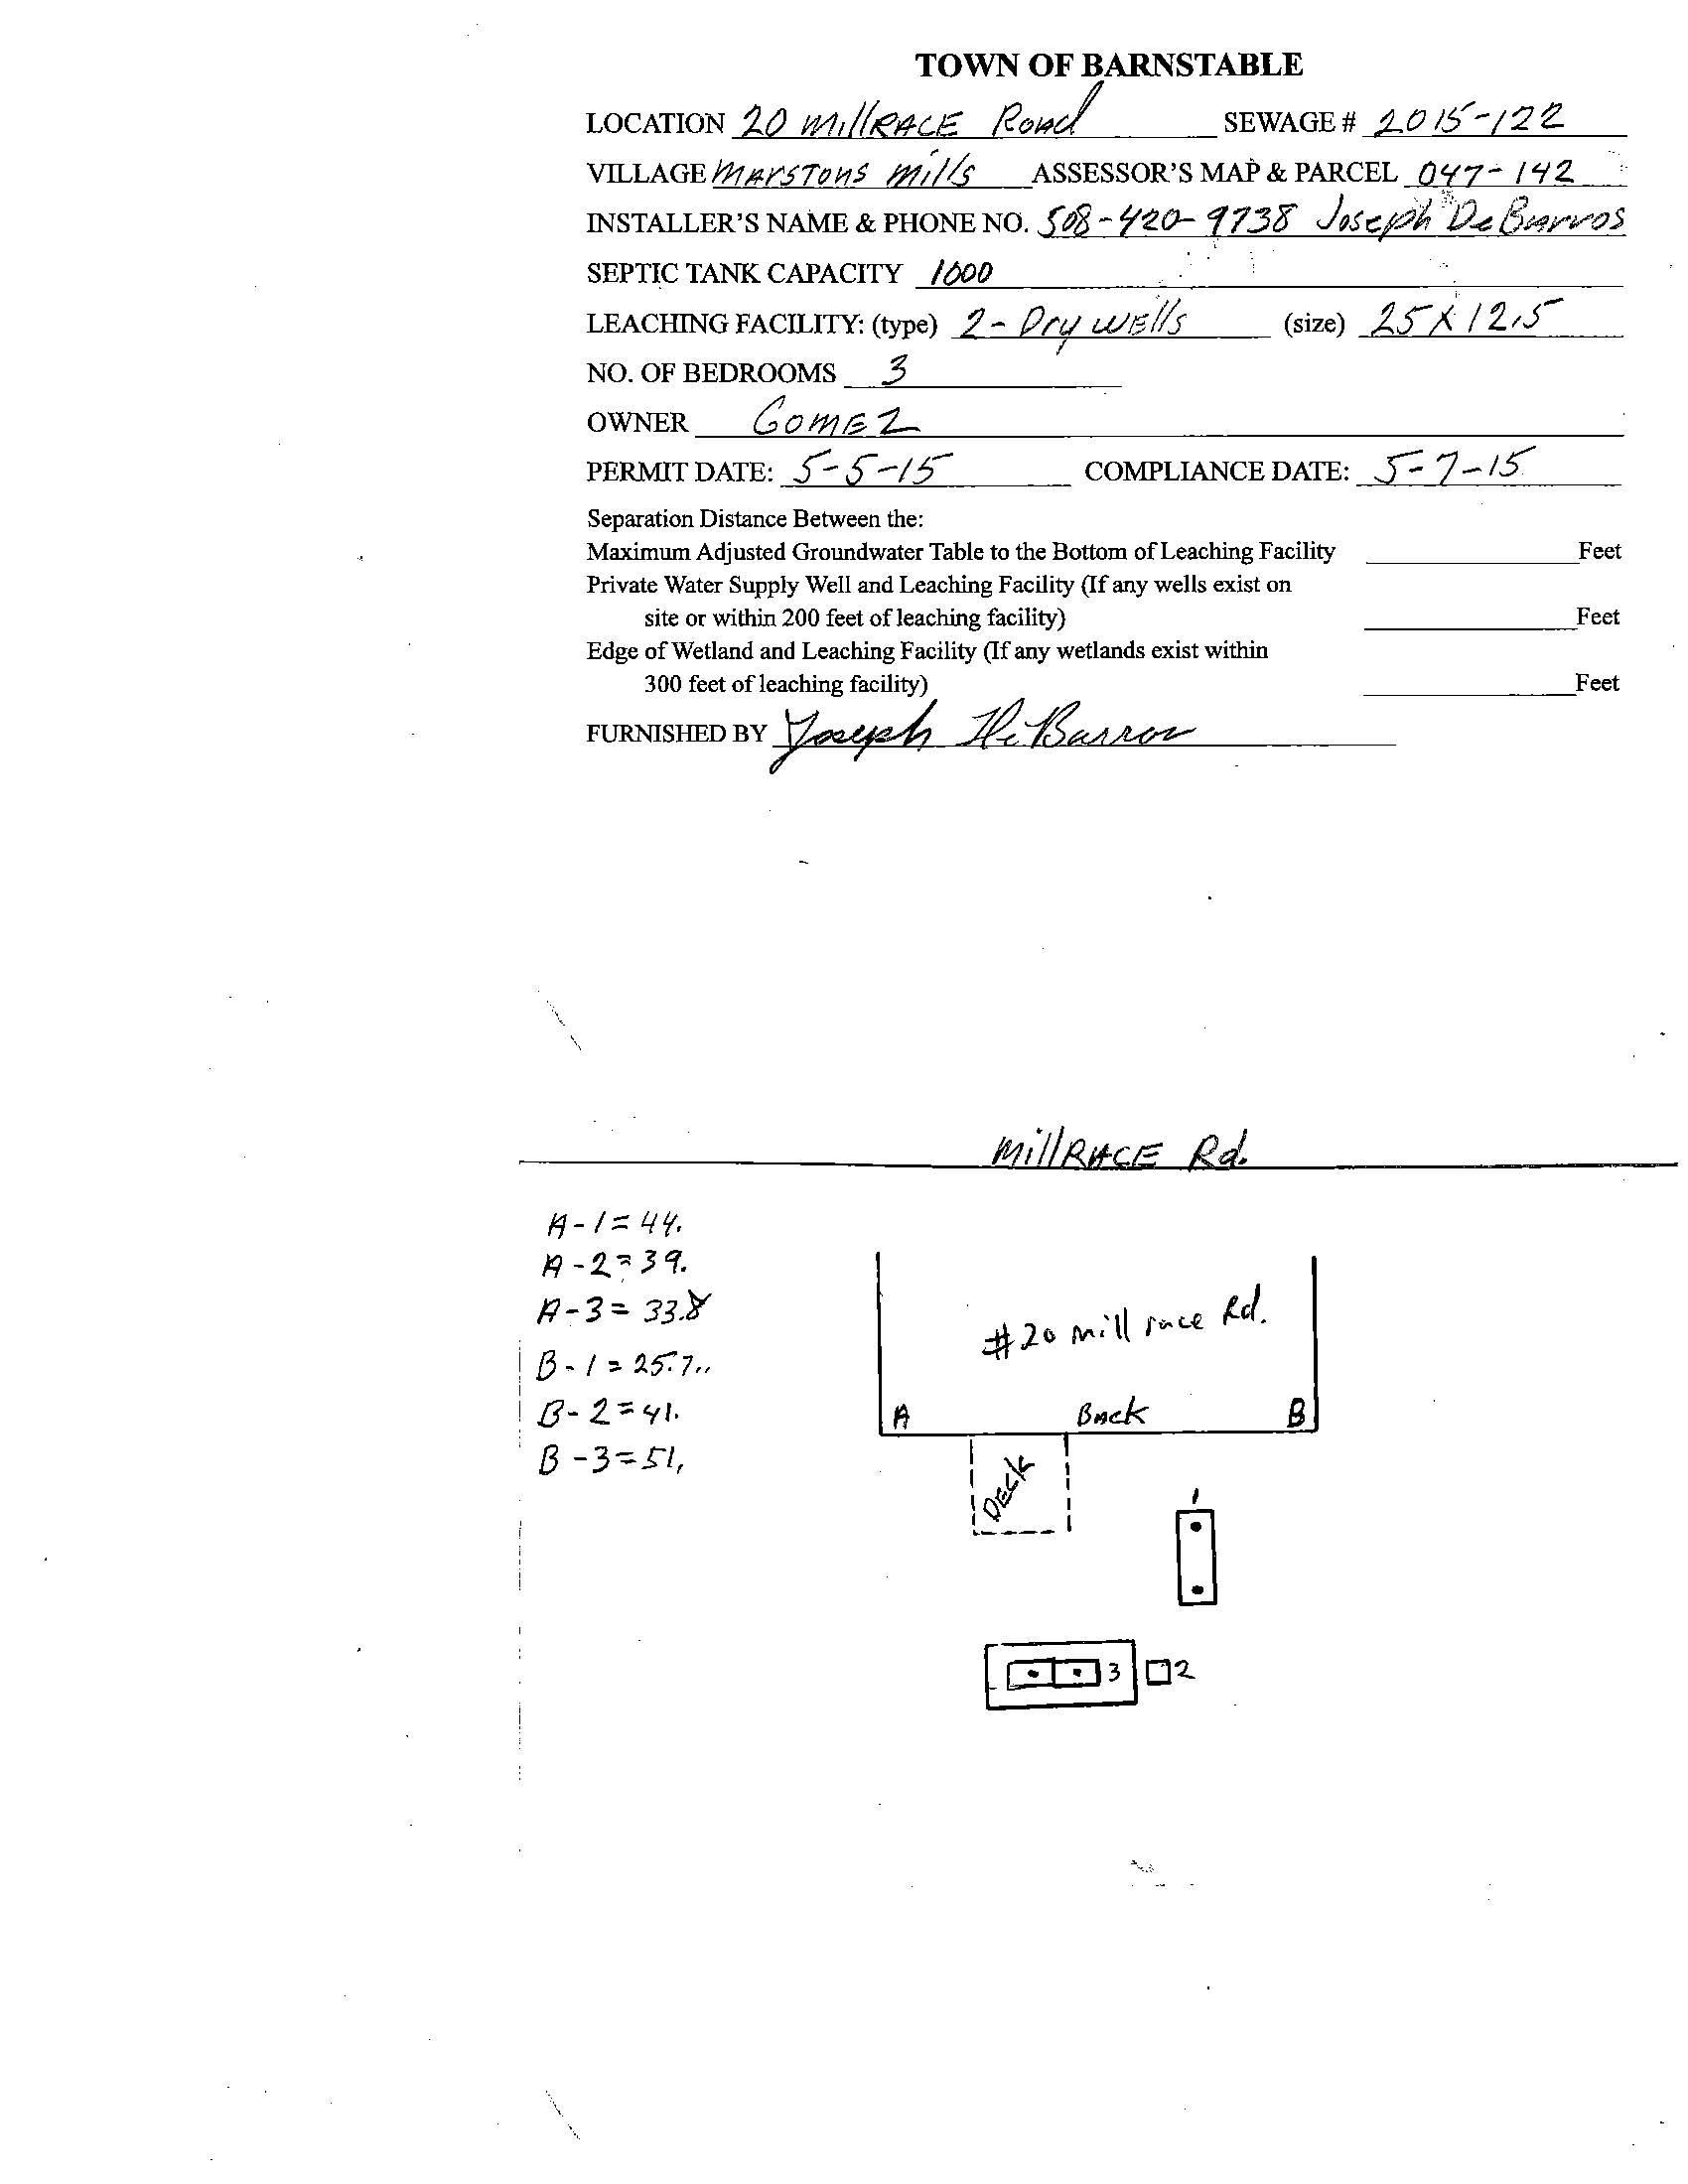 TOWN OF BARNSTABLE
LOCATION 20 MillRACE Road SEWAGE # 2015-122
VILLAGE MARSTONS Mills ASSESSOR'S MAP & PARCEL 047-142
INSTALLER'S NAME & PHONE NO. 508-420-9738 Joseph DeBarros
SEPTIC TANK CAPACITY 1000
LEACHING FACILITY: (type) 2- Dry wells (size) 25 X 12.5
NO. OF BEDROOMS 3
OWNER GOMEZ
PERMIT DATE: 5-5-15 COMPLIANCE DATE: 5-7-15
Separation Distance Between the:
Maximum Adjusted Groundwater Table to the Bottom of Leaching Facility Feet
Private Water Supply Well and Leaching Facility (If any wells exist on
site or within 200 feet of leaching facility) Feet
Edge of Wetland and Leaching Facility (If any wetlands exist within
300 feet of leaching facility) Feet
FURNISHED BY Joseph DeBarros
MillRACE Rd.
A-1=44.
A-2=39.
A-3=33.8
B-1=25.7
B-2=41.
B-3=51.
#20 mill race Rd.
A Back B
DECK
1
3 2